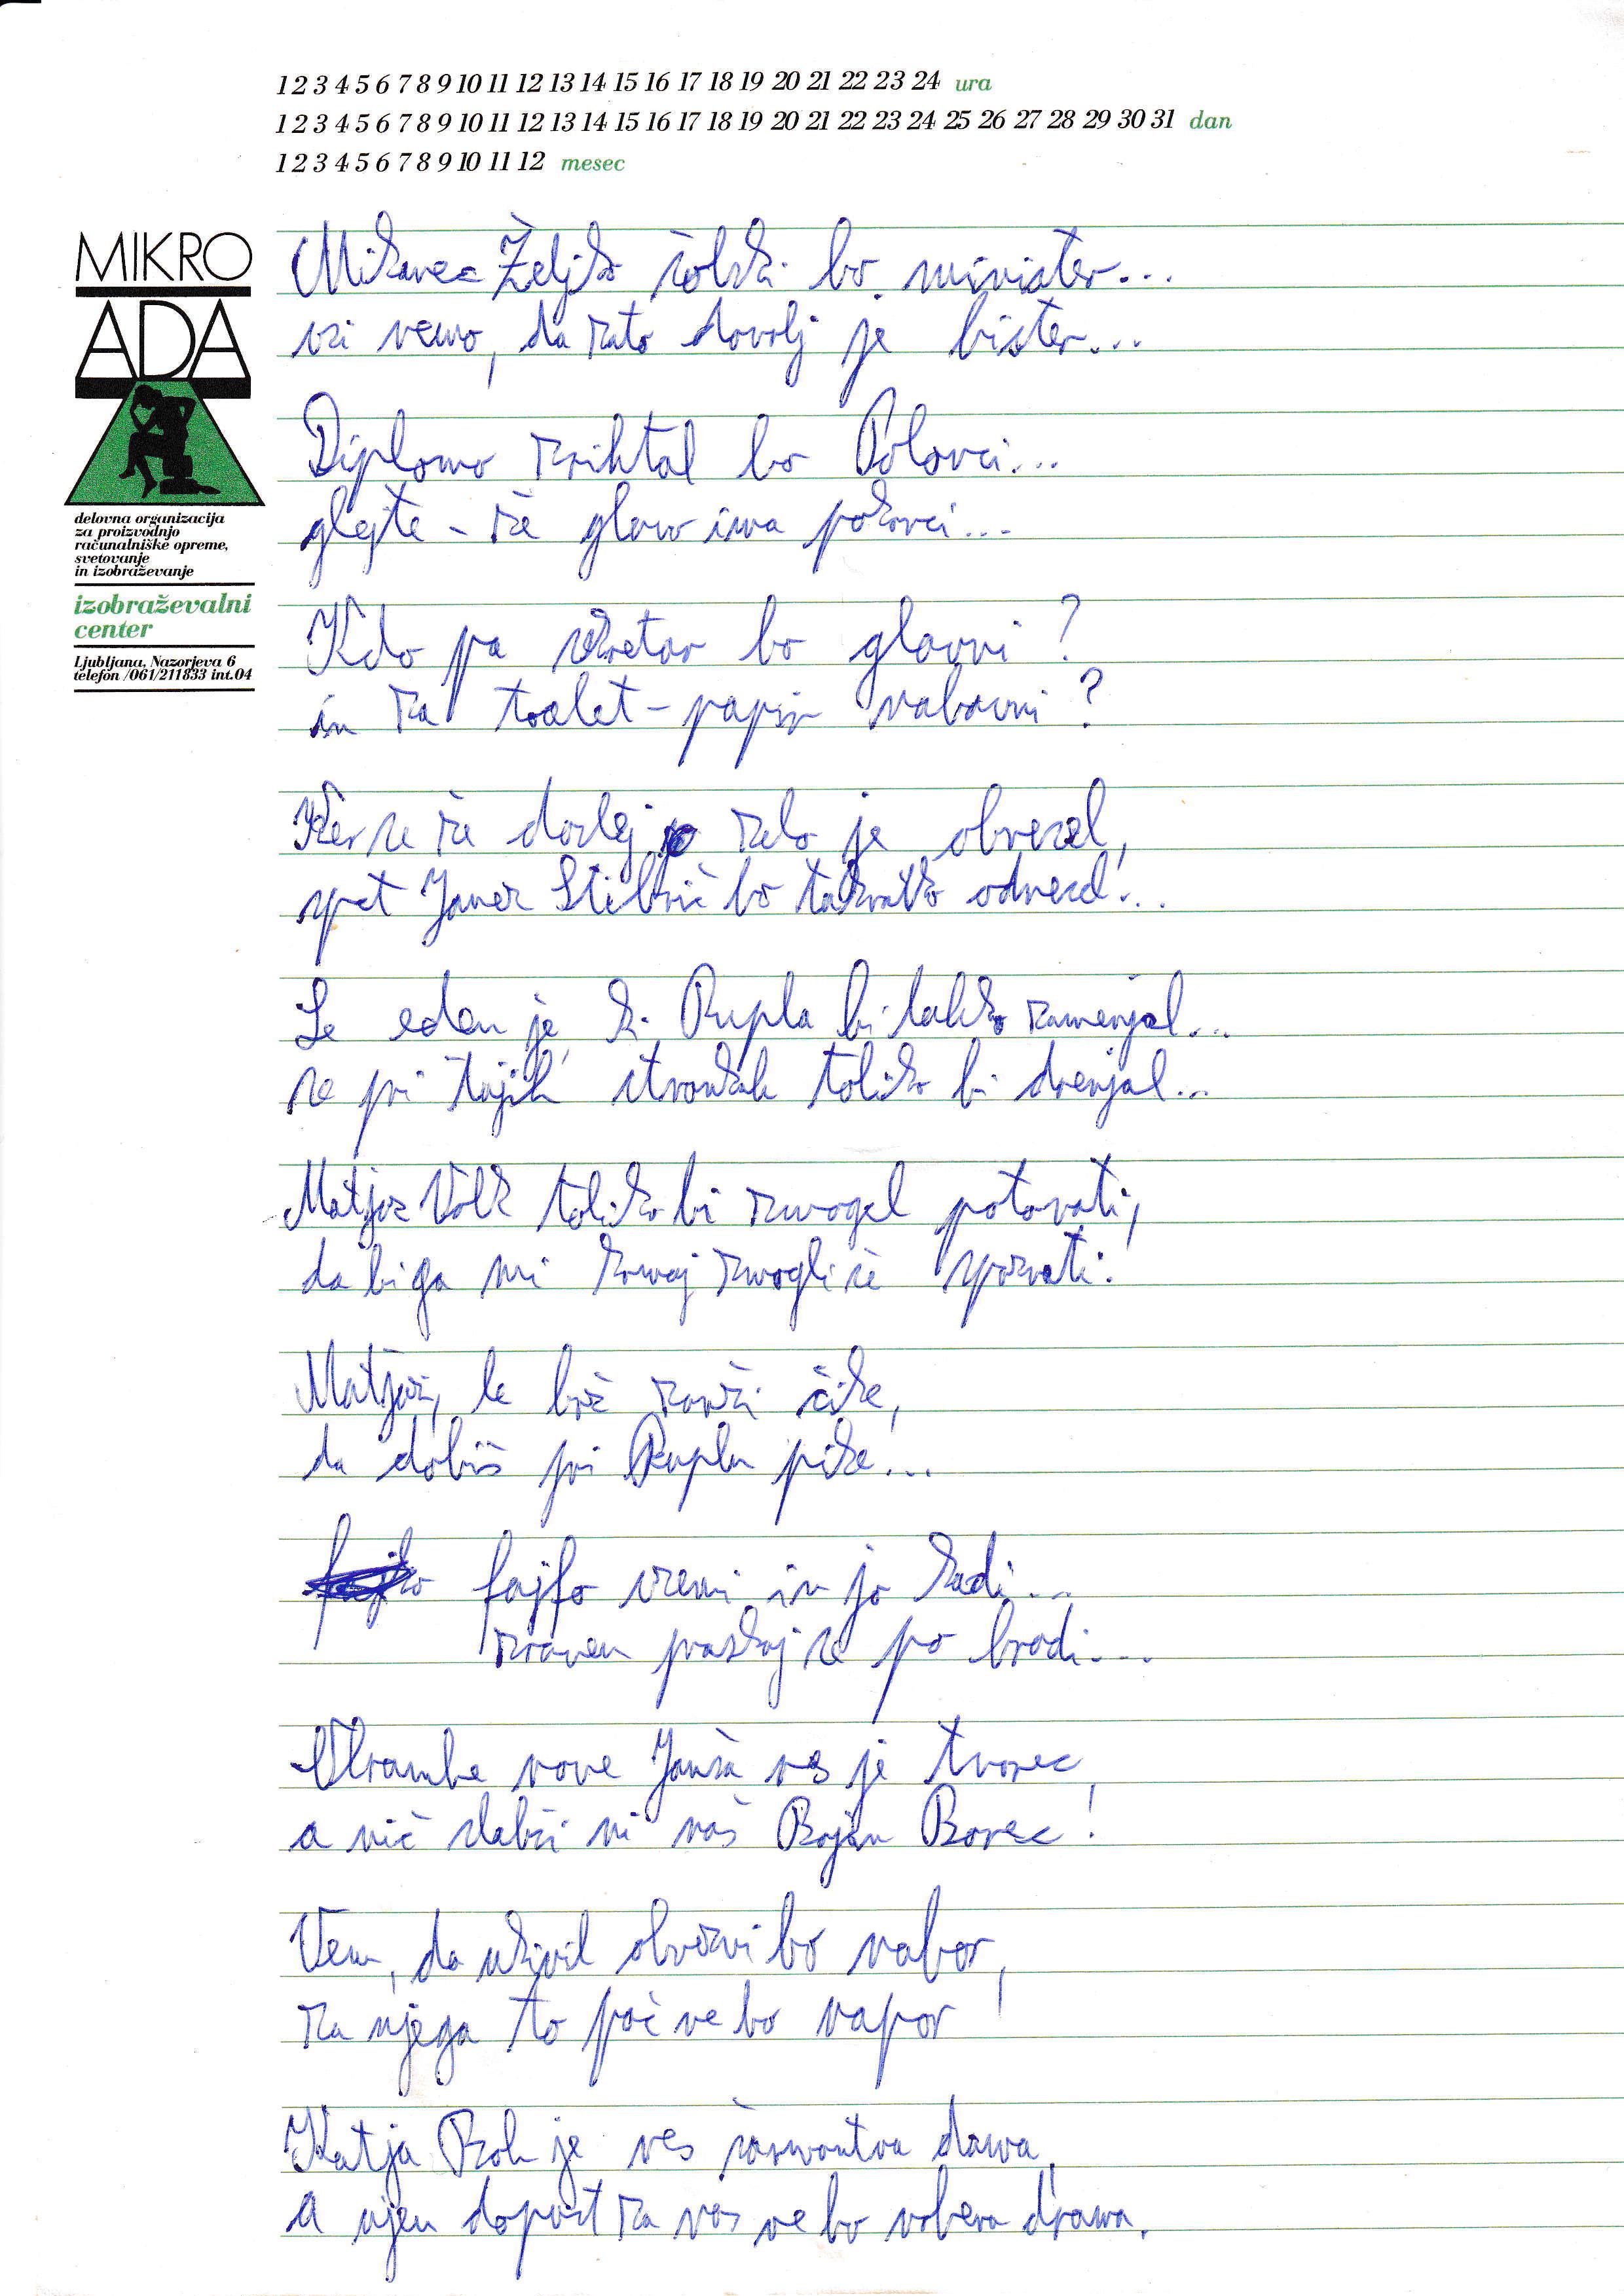 1 2 3 4 5 6 7 8 9 10 11 12 13 14 15 16 17 18 19 20 21 22 23 24 ura
1 2 3 4 5 6 7 8 9 10 11 12 13 14 15 16 17 18 19 20 21 22 23 24 25 26 27 28 29 30 31 dan
1 2 3 4 5 6 7 8 9 10 11 12 mesec
MIKRO
ADA
delovna organizacija
za proizvodnjo
računalniške opreme,
svetovanje
in izobraževanje
izobraževalni
center
Ljubljana, Nazorjeva 6
telefon /061/211833 int.04
Mikavec Željko šolski bo minister...
vsi vemo, da zato dovolj je bister...
Diplomo zrihtal bo Polovci...
glejte - že glavo ima pokonci...
Kdo pa sekretar bo glavni?
in za toalet-papir nabavni?
Ker se že doslej zelo je obvezal,
spet Janez Stibrič bo takratko odvezal!...
Le eden je ki Rupla bi lahko zamenjal...
se pri tujih strankah toliko bi drenjal...
Matjaz Volk toliko bi zmogel potovati,
da bi ga mi komaj zmogli še spoznati.
Matjaž, le brž zavrži čike,
da dobiš pri Ruplu pike...
fajfo vzemi in jo kadi...
zraven praskaj se po bradi...
Obrambe nove Janša ves je tvorec,
a nič slabši ni naš Bojan Borec!
Vem, da uživil obvezni bo nabor,
za njega to pač ne bo napor!
Katja Boh je ves šarmantna dama,
a njen dopust za nas ne bo nobena drama.